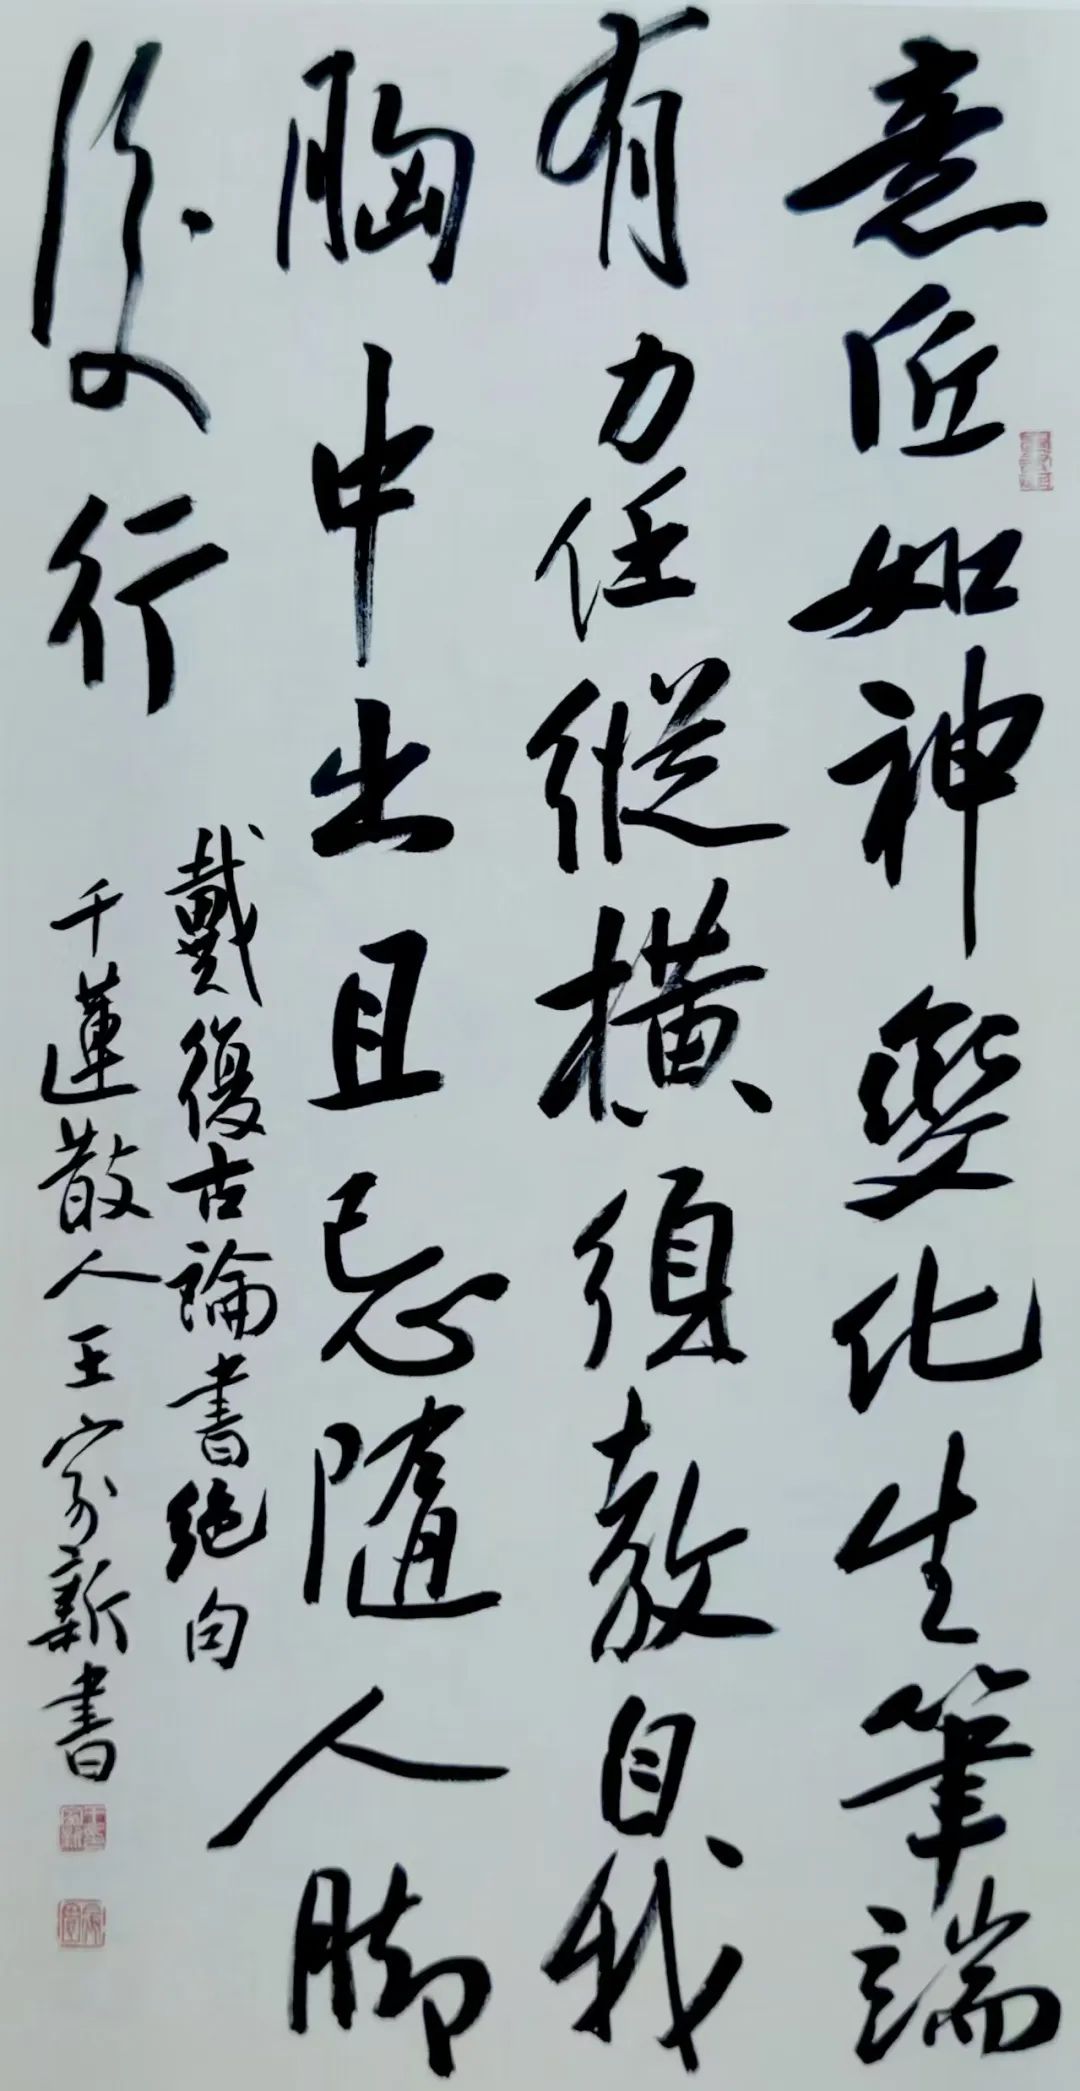 意匠如神變化生筆端
有力任縱橫須教自我
胸中出且忌隨人腳
後行
戴復古論書絕句
千蓮散人王家新書